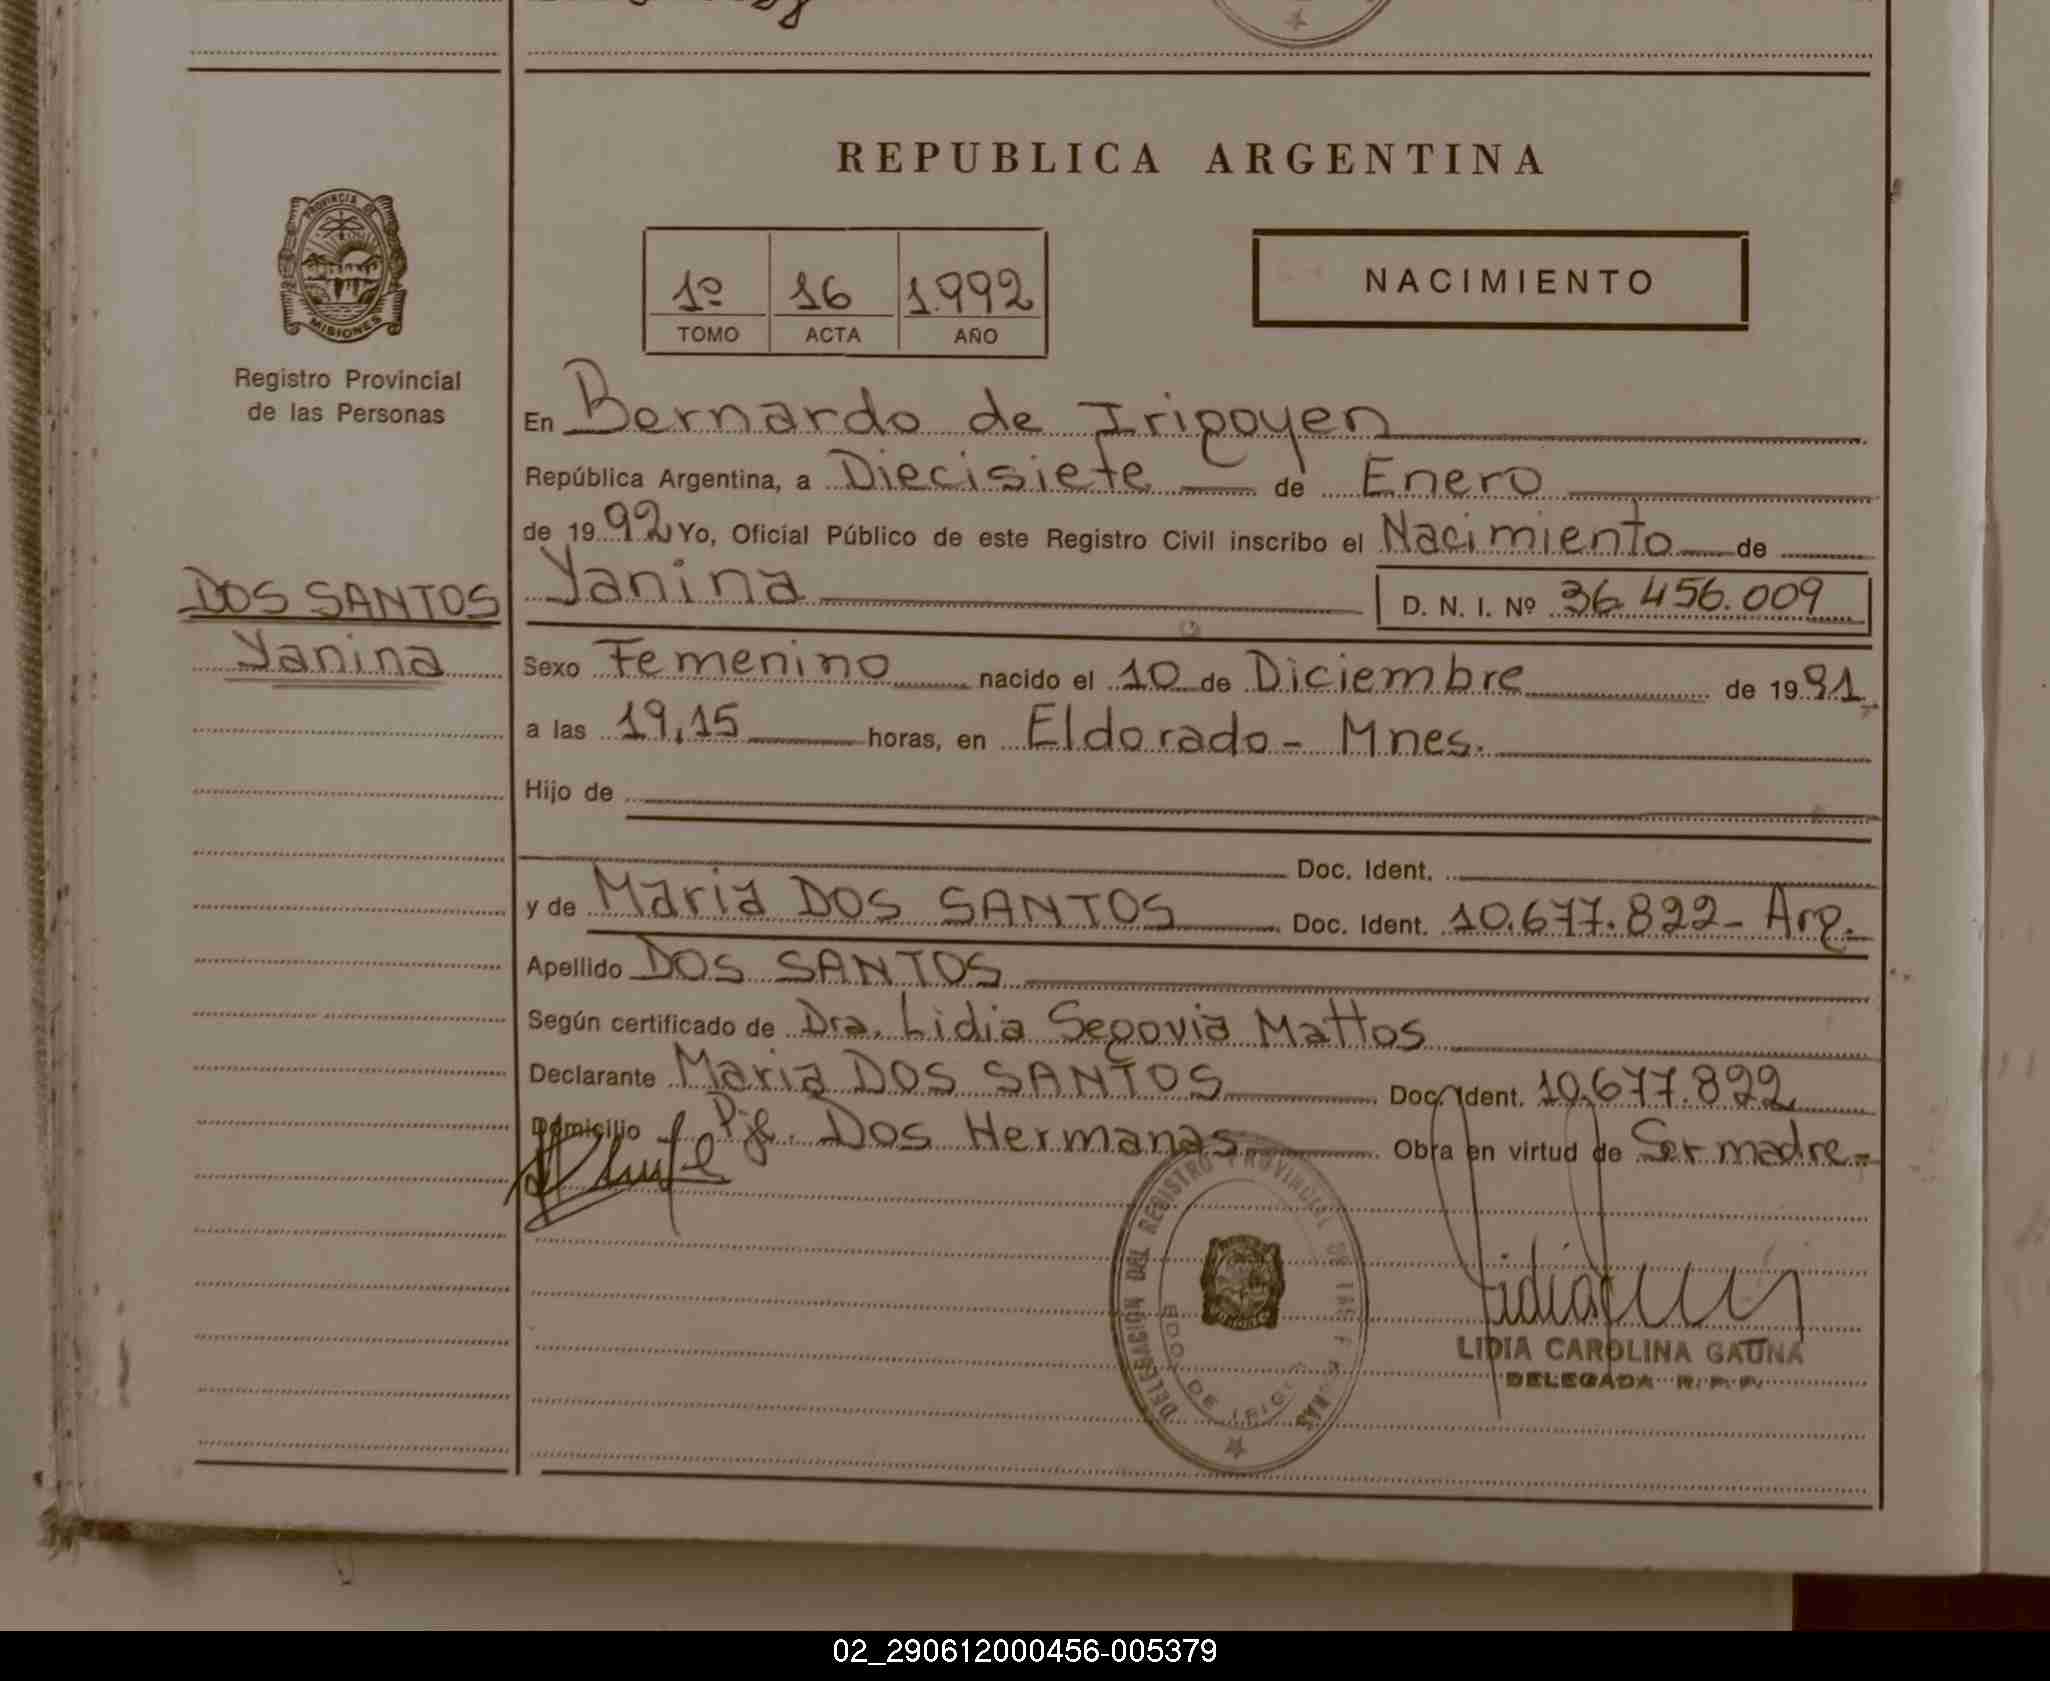 REPUBLICA ARGENTINA
PROVINCIA DE
MISIONES
Registro Provincial
de las Personas
1º 16 1.992
TOMO ACTA AÑO
NACIMIENTO
En Bernardo de Irigoyen
República Argentina, a Diecisiete de Enero
de 1992 Yo, Oficial Público de este Registro Civil inscribo el Nacimiento de
DOS SANTOS
Yanina
Yanina D. N. I. Nº 36.456.009
Sexo Femenino nacido el 10 de Diciembre de 1991
a las 19,15 horas, en Eldorado - Mnes.
Hijo de
Doc. Ident.
y de Maria DOS SANTOS Doc. Ident. 10.677.822 - Arg.
Apellido DOS SANTOS
Según certificado de Dra. Lidia Segovia Mattos
Declarante Maria DOS SANTOS Doc. Ident. 10.677.822
Domicilio Pje. Dos Hermanas Obra en virtud de Ser madre.-
DELEGACIÓN DEL REGISTRO PROVINCIAL DE LAS
BDO. DE
LIDIA CAROLINA GAUNA
DELEGADA R. P. P.
02_290612000456-005379